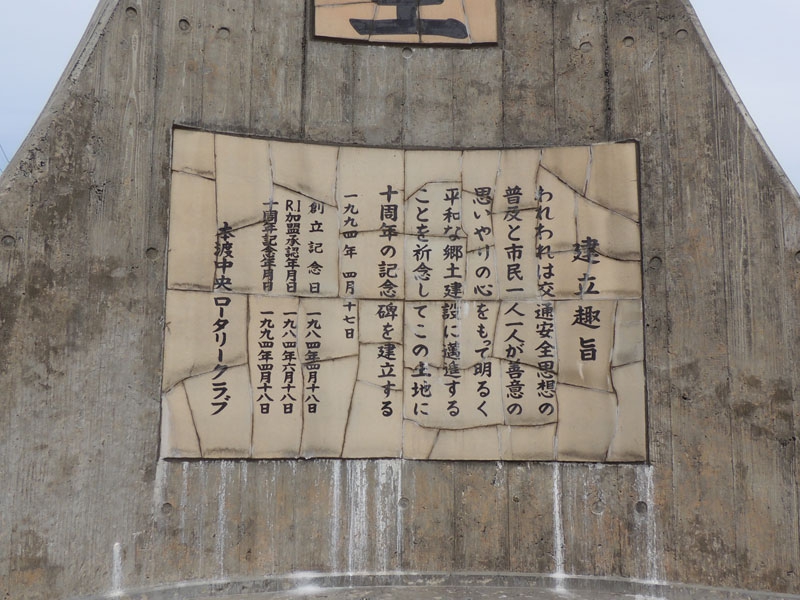 建立趣旨
われわれは交通安全思想の
普及と市民一人一人が善意の
思いやりの心をもって明るく
平和な郷土建設に邁進する
ことを祈念してこの土地に
十周年の記念碑を建立する
一九九四年 四月十七日
創立記念日 一九八四年四月十八日
R.I加盟承認年月日 一九八四年六月十八日
十周年記念年月日 一九九四年四月十八日
本渡中央ロータリークラブ